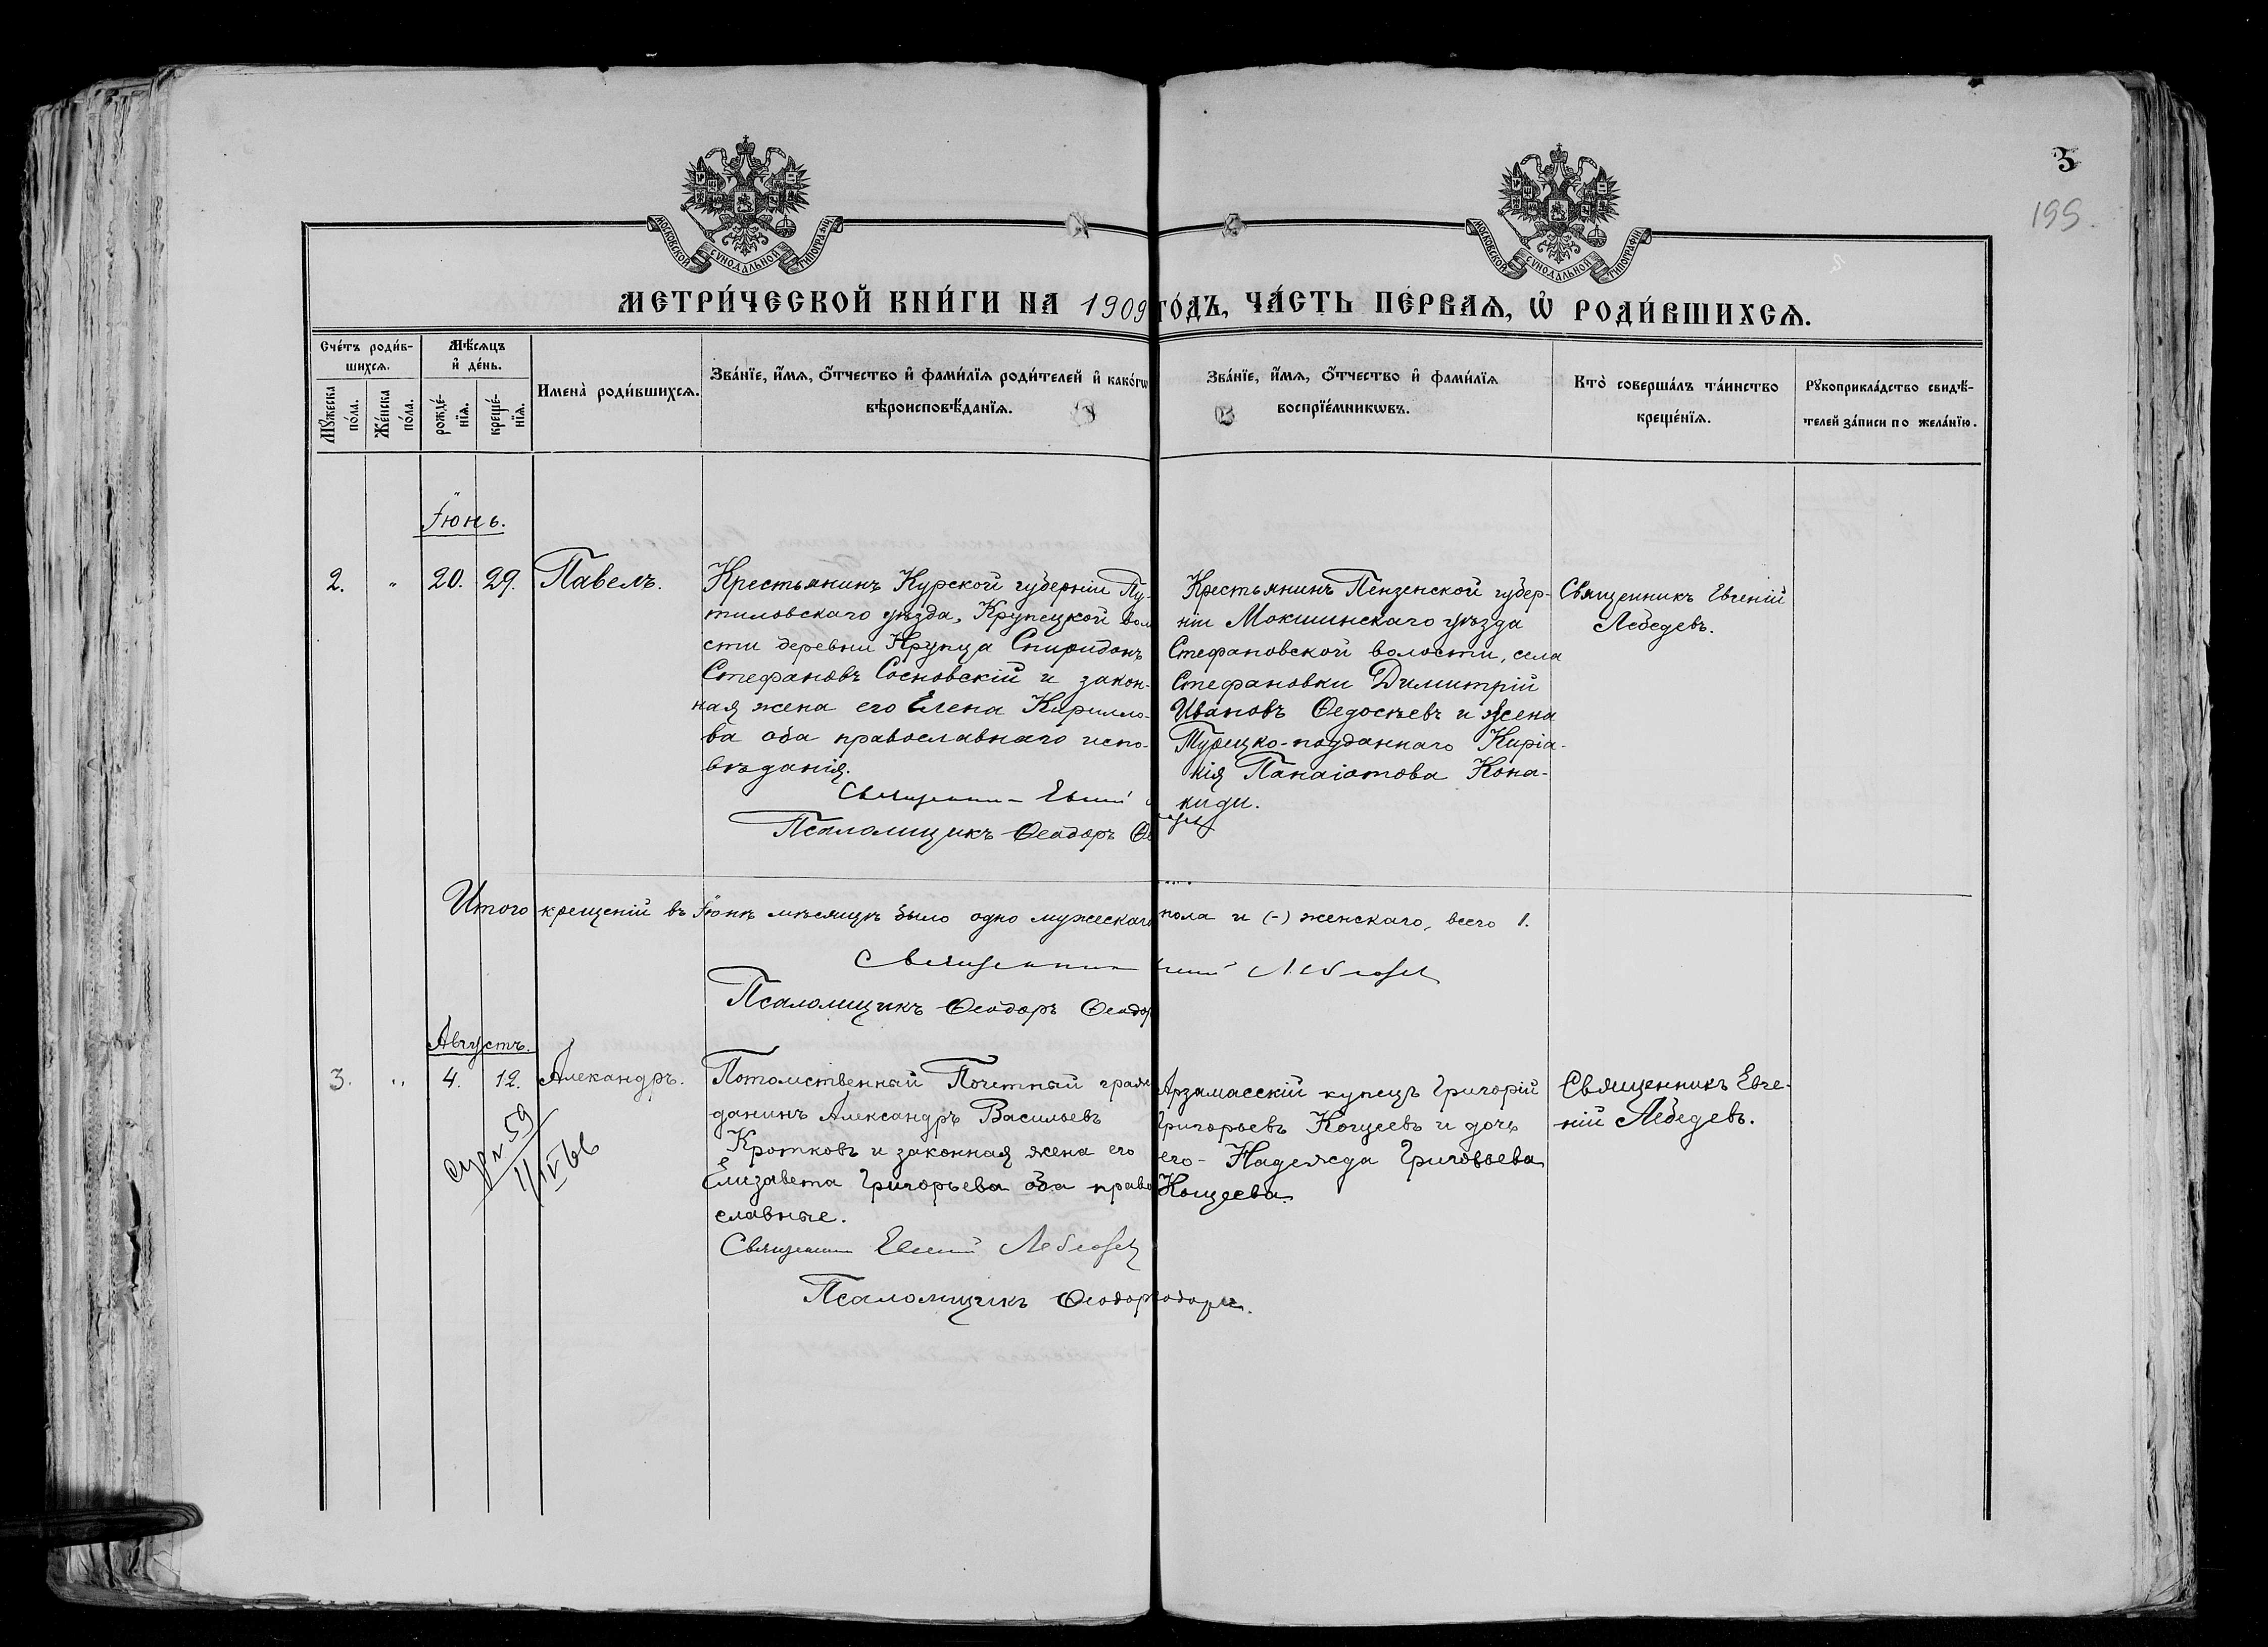 3
195.
МОСКОВСКОЙ СѴНОДАЛЬНОЙ ТИПОГРАФІИ
МОСКОВСКОЙ СѴНОДАЛЬНОЙ ТИПОГРАФІИ
МЕТРИ́ЧЕСКОЙ КНИ́ГИ НА 1909 ГО́ДЪ, ЧА́СТЬ ПЕ́РВАѦ, Ѡ҆ РОДИ́ВШИХСѦ.
Сче́тъ роди́в-
шихсѧ.
Мꙋ́жеска по́ла.
Же́нска по́ла.
Мѣ́сѧцъ
и҆ де́нь.
рожде́-
нїѧ.
креще́-
нїѧ.
Имена̀ роди́вшихсѧ.
Зва́нїе, и҆́мѧ, о҆́тчество и҆ фами́лїѧ роди́телей и҆ како́гѡ
вѣроисповѣ́данїѧ.
Зва́нїе, и҆́мѧ, о҆́тчество и҆ фами́лїѧ
воспрїе́мникѡвъ.
Кто̀ соверша́лъ та́инство
креще́нїѧ.
Рꙋкоприкла́дство свидѣ́-
телей за́писи по жела́нїю.
Іюнь.
2. " 20. 29. Павелъ.
Крестьянинъ Курской губерніи Пу-
тиловскаго уѣзда, Крупецкой вол
сти деревни Крупца Спиридонъ
Стефановъ Сосновскій и закон-
ная жена его Елена Кирилло-
ва оба православнаго испо-
вѣданія.
Священникъ Евгеній
Псаломщикъ Ѳеодоръ Ѳе
Крестьянинъ Пензенской губер-
ніи Мокшинскаго уѣзда
Стефановской волости, села
Стефановки Димитрій
Ивановъ Ѳедосѣевъ и жена
Турецко-подданнаго Киріа-
кія Панаіотова Кона-
киди.
Священникъ Евгеній
Лебедевъ.
Итого крещеній въ Іюнѣ мѣсяцѣ было одно мужескаго пола и (-) женскаго, всего 1.
Священникъ Лебедев
Псаломщикъ Ѳеодоръ Ѳеодор
Августъ.
3. " 4. 12. Алекандръ.
Потомственный Почетный граж
данинъ Александръ Васильевъ
Кротковъ и законная жена его
Елизавета Григорьева оба право
славные.
Священник Евгеній Лебедев
Псаломщикъ Ѳеодор
Арзамасскій купецъ Григорій
Григорьевъ Кощеевъ и дочь
его - Надежда Григорьева
Кощеева.
Священникъ Евге-
ній Лебедевъ.